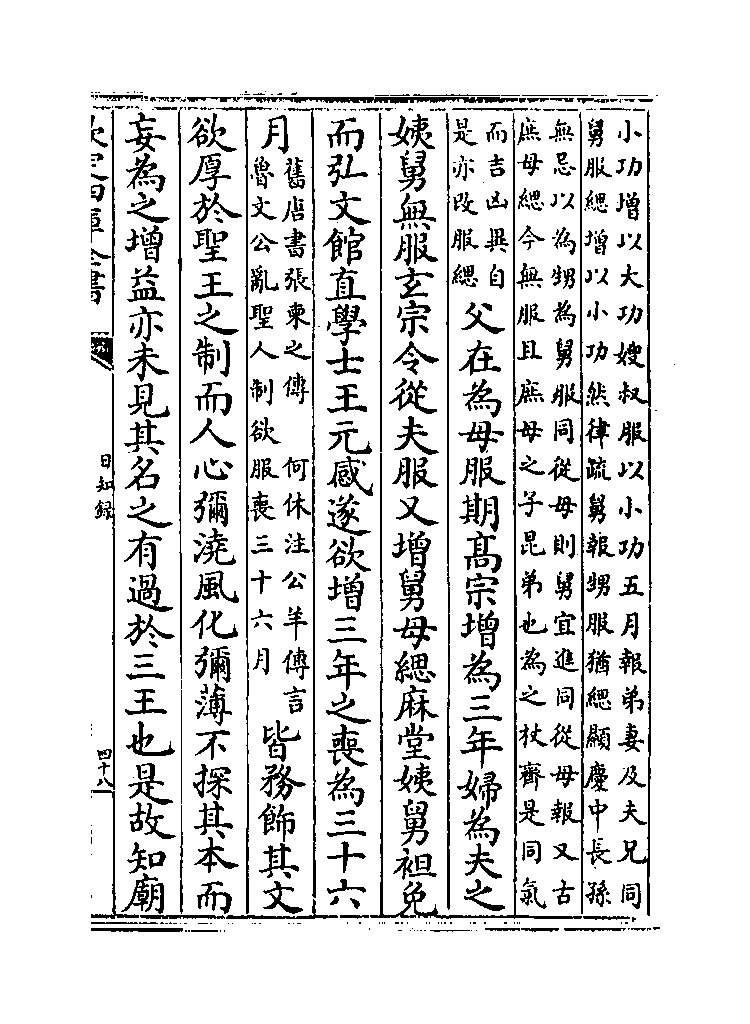 小功增以大功嫂叔服以小功五月報弟妻及夫兄同
舅服緦增以小功然律疏舅報甥服猶緦顯慶中長孫
無忌以為甥為舅服同從母則舅宜進同從母報又古
庶母緦今無服且庶母之子昆弟也為之杖齊是同氣
而吉凶異自
是亦改服緦
父在為母服期髙宗增為三年婦為夫之
姨舅無服玄宗令從夫服又增舅母緦麻堂姨舅袒免
而弘文館直學士王元感遂欲增三年之喪為三十六
月
舊唐書張柬之傳 何休注公羊傳言
魯文公亂聖人制欲服喪三十六月
皆務飾其文
欲厚於聖王之制而人心彌澆風化彌薄不探其本而
妄為之增益亦未見其名之有過於三王也是故知廟
欽定四庫全書
日知録
四十八